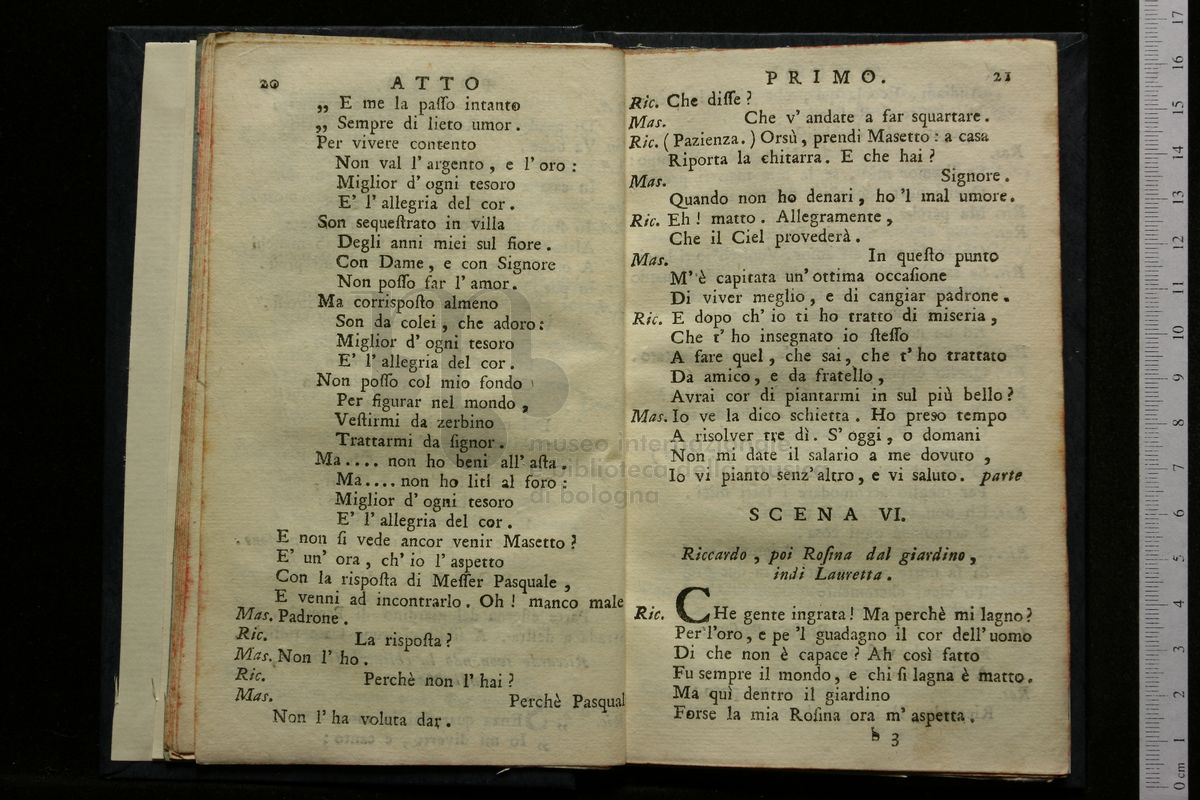 20 ATTO
„ E me la paſſo intanto
„ Sempre di lieto umor.
Per vivere contento
Non val l' argento, e l' oro:
Miglior d' ogni tesoro
E' l' allegria del cor.
Son sequeſtrato in villa
Degli anni miei sul fiore.
Con Dame, e con Signore
Non poſſo far l' amor.
Ma corrispoſto almeno
Son da colei, che adoro:
Miglior d' ogni tesoro
E' l' allegria del cor.
Non poſſo col mio fondo
Per figurar nel mondo,
Veſtirmi da zerbino
Trattarmi da ſignor.
Ma.... non ho beni all' aſta.
Ma.... non ho liti al foro:
Miglior d' ogni tesoro
E' l' allegria del cor.
E non ſi vede ancor venir Masetto?
E' un' ora, ch' io l' aspetto
Con la rispoſta di Meſſer Pasquale,
E venni ad incontrarlo. Oh! manco male
Mas. Padrone.
Ric. La rispoſta?
Mas. Non l' ho.
Ric. Perchè non l' hai?
Mas. Perchè Pasqual
Non l' ha voluta dar.
PRIMO. 21
Ric. Che diſſe?
Mas. Che v' andate a far squartare.
Ric. (Pazienza.) Orsù, prendi Masetto: a casa
Riporta la chitarra. E che hai?
Mas. Signore.
Quando non ho denari, ho 'l mal umore.
Ric. Eh! matto. Allegramente,
Che il Ciel provederà.
Mas. In queſto punto
M' è capitata un' ottima occaſione
Di viver meglio, e di cangiar padrone.
Ric. E dopo ch' io ti ho tratto di miseria,
Che t' ho insegnato io ſteſſo
A fare quel, che sai, che t' ho trattato
Da amico, e da fratello,
Avrai cor di piantarmi in sul più bello?
Mas. Io ve la dico schietta. Ho preso tempo
A risolver tre dì. S' oggi, o domani
Non mi date il salario a me dovuto,
Io vi pianto senz' altro, e vi saluto. parte
SCENA VI.
Riccardo, poi Roſina dal giardino,
indi Lauretta.
Ric. CHe gente ingrata! Ma perchè mi lagno?
Per l'oro, e pe 'l guadagno il cor dell' uomo
Di che non è capace? Ah così fatto
Fu sempre il mondo, e chi ſi lagna è matto.
Ma quì dentro il giardino
Forse la mia Roſina ora m' aspetta.
b 3
museo internazionale
e biblioteca della musica
di bologna
0 cm 1 2 3 4 5 6 7 8 9 10 11 12 13 14 15 16 17